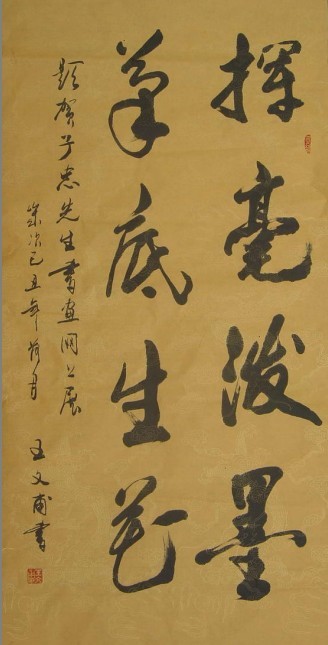 揮毫潑墨
筆底生花
題賀于忠先生書画网上展
歲次己丑年月
王文甫書